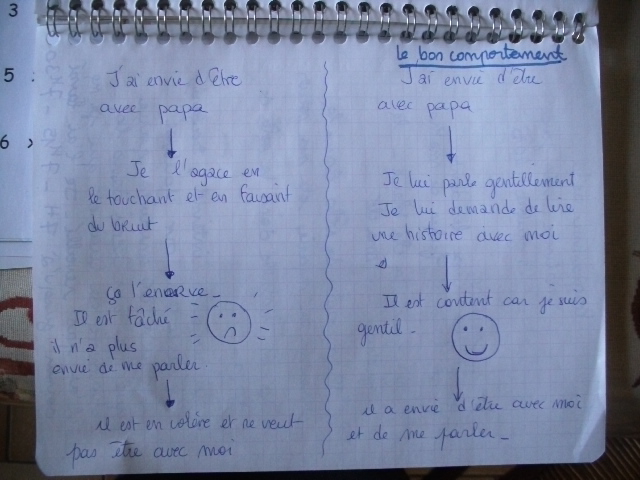 3
5
6
J'ai envie d'être
avec papa
Je l'agace en
le touchant et en faisant
du bruit
ça l'énerve_
Il est fâché
il n'a plus
envie de me parler.
il est en colère et ne veut
pas être avec moi
le bon comportement
J'ai envie d'être
avec papa
Je lui parle gentillement
Je lui demande de lire
une histoire avec moi
Il est content car je suis
gentil_
il a envie d'être avec moi
et de me parler_